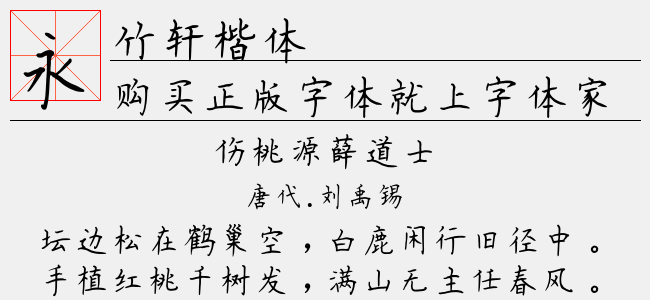 永
竹轩楷体
购买正版字体就上字体家
伤桃源薛道士
唐代.刘禹锡
坛边松在鹤巢空，白鹿闲行旧径中。
手植红桃千树发，满山无主任春风。